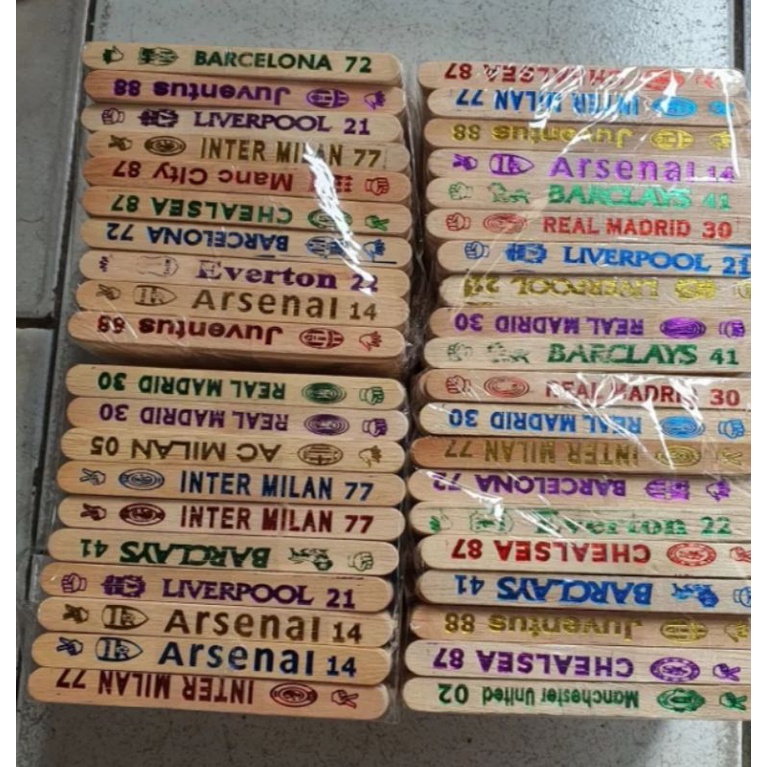 BARCELONA 72
Juventus 88
LIVERPOOL 21
INTER MILAN 77
Manc City 87
CHEALSEA 87
BARCELONA 72
Everton 22
Arsenal 14
Juventus 88
REAL MADRID 30
REAL MADRID 30
AC MILAN 05
INTER MILAN 77
INTER MILAN 77
BARCLAYS 41
LIVERPOOL 21
Arsenal 14
Arsenal 14
INTER MILAN 77
CHEALSEA 87
INTER MILAN 77
Juventus 88
Arsenal 14
BARCLAYS 41
REAL MADRID 30
LIVERPOOL 21
LIVERPOOL 21
REAL MADRID 30
BARCLAYS 41
REAL MADRID 30
REAL MADRID 30
INTER MILAN 77
BARCELONA 72
Everton 22
CHEALSEA 87
BARCLAYS 41
Juventus 88
CHEALSEA 87
Manchester United 02